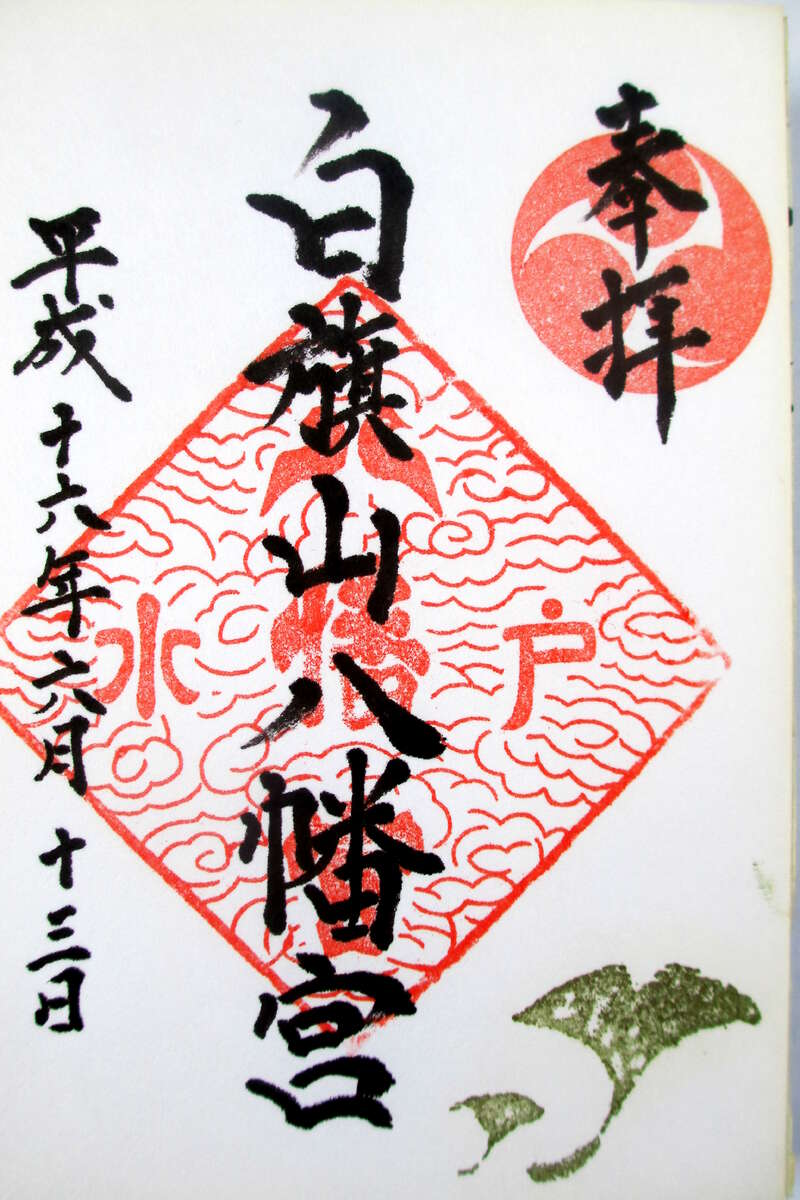 奉拝
白旗山八幡宮
平成十六年六月十三日
八
水 幡 戸